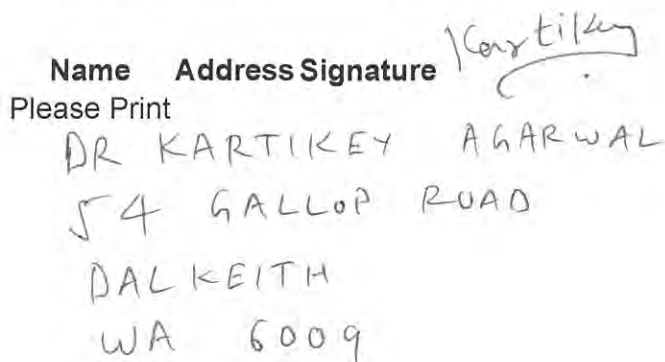 Name Address Signature Kartikey
Please Print
DR KARTIKEY AGARWAL
54 GALLOP ROAD
DALKEITH
WA 6009